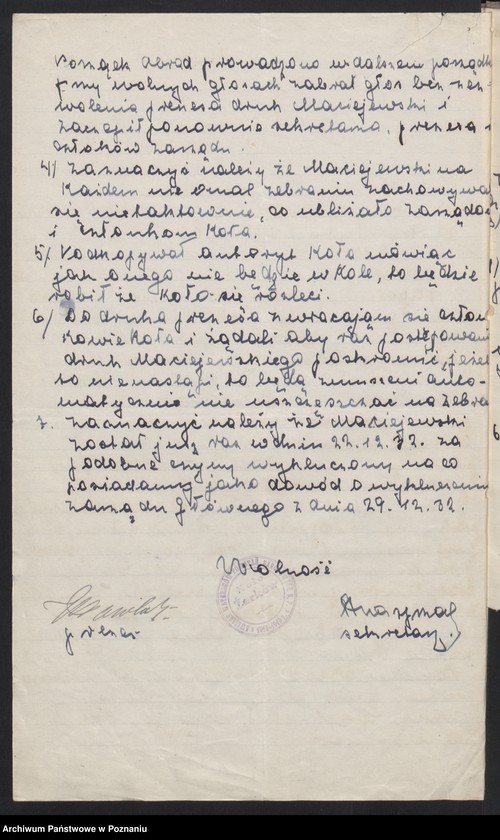 Porządek obrad prowadzono w dalszem porządk
przy wolnych głosach zabrał głos bez zez-
wolenia prezesa druh Maciejewski i
zaczepił ponownie sekretarza, prezesa i
członków zarządu.
4/ Zaznaczyć należy że Maciejewski na
Każdem nie omal zebraniu zachowywał
się nietaktownie, co ubliżało zarządo
i członkom Koła.
5/ Podkopywał autoryt Koła mówiąc
jak onego nie będzie w Kole, to będzie
robił że Koło się rozleci.
6/ Do druha prezesa zwracają się człon
kowie Koła i żądali aby raz postępowani
druh Maciejewskiego poskromić, jeżel
to nie nastąpi, to będą zmuszeni auto-
matycznie nie uczęszczać na zebra
7. Zaznaczyć należy że Maciejewski
został już raz w dniu 22.12.32. za
podobne czyny wykluczony na co
posiadamy jako dowód o wykluczeniu
zarządu Głównego z dnia 29.12.32.
Wolność
prezes
sekretarz
Archiwum Państwowe w Poznaniu